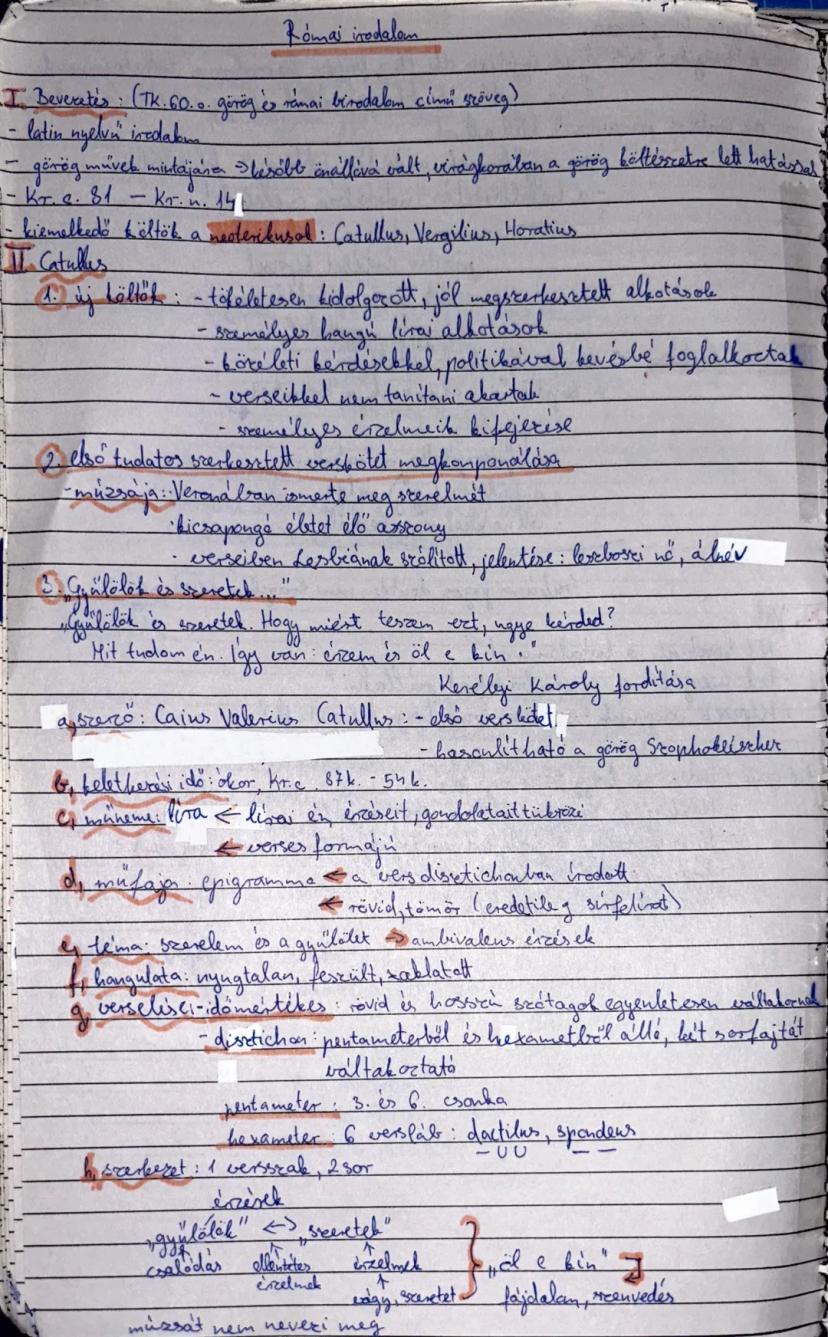 Római irodalom
I. Bevezetés: (TK. 60. o. görög és római birodalom című szöveg)
- latin nyelvű irodalom
- görög művek mintájára → később önállóvá vált, virágkorában a görög költészetre lett hatással
- Kr. e. 81 – Kr. u. 14
- kiemelkedő költők a neoterikusok: Catullus, Vergilius, Horatius
II. Catullus
1. új költők: - tökéletesen kidolgozott, jól megszerkesztett alkotások
- személyes hangú lírai alkotások
- közéleti kérdésekkel, politikával kevésbé foglalkoztak
- verseikkel nem tanítani akartak
- személyes érzelmeik kifejezése
2. első tudatos szerkesztett verskötet megkomponálása
- múzsája: Veronában ismerte meg szerelmét
· kicsapongó életet élő asszony
· verseiben Lesbiának szólított, jelentése: leszboszi nő, álnév
3. "Gyűlölök és szeretek..."
"Gyűlölök és szeretek. Hogy miért teszem ezt, ugye kérded?
Mit tudom én. Így van: érzem és öl e kín"
Kerélyi Károly fordítása
a, szerző: Caius Valerius Catullus: - első verskötet
- hasonlítható a görög Szophokleiszhez
b, keletkezési idő: ókor, Kr. e. 87k. - 54k.
c, műneme: líra ← lírai én érzéseit, gondolatait tükrözi
← verses formájú
d, műfaja: epigramma ← a vers disztichonban íródott
← rövid, tömör (eredetileg sírfelirat)
e, téma: szerelem és a gyűlölet → ambivalens érzések
f, hangulata: nyugtalan, feszült, zaklatott
g, verselése: időmértékes: rövid és hosszú szótagok egyenletesen váltakoznak
- disztichon: pentameterből és hexametből álló, két sorfajtát
váltakoztató
pentameter: 3. és 6. csonka
hexameter: 6 versláb: dactilus, spondeus
– U U – –
h, szerkezet: 1 versszak, 2 sor
érzések
"gyűlölök" ↔ "szeretek"
csalódás ellentétes érzelmek } "öl e kín"
érzelmek
vágy, szeretet fájdalom, szenvedés
múzsát nem nevezi meg